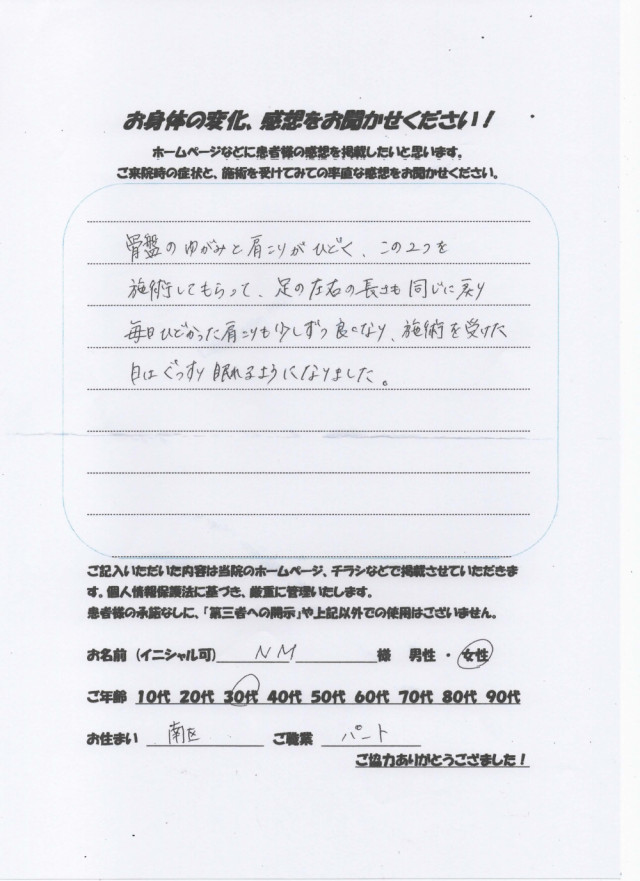 お身体の変化、感想をお聞かせください!
ホームページなどに患者様の感想を掲載したいと思います。
ご来院時の症状と、施術を受けてみての率直な感想をお聞かせください。
骨盤のゆがみと肩こりがひどく、この2つを
施術してもらって、足の左右の長さも同じに戻り
毎日ひどかった肩こりも少しずつ良くなり、施術を受けた
日はぐっすり眠れるようになりました。
ご記入いただいた内容は当院のホームページ、チラシなどで掲載させていただきま
す。個人情報保護法に基づき、厳重に管理いたします。
患者様の承諾なしに、「第三者への開示」や上記以外での使用はございません。
お名前(イニシャル可) NM 様 男性・女性
ご年齢 10代 20代 30代 40代 50代 60代 70代 80代 90代
お住まい 南区 ご職業 パート
ご協力ありがとうござました!